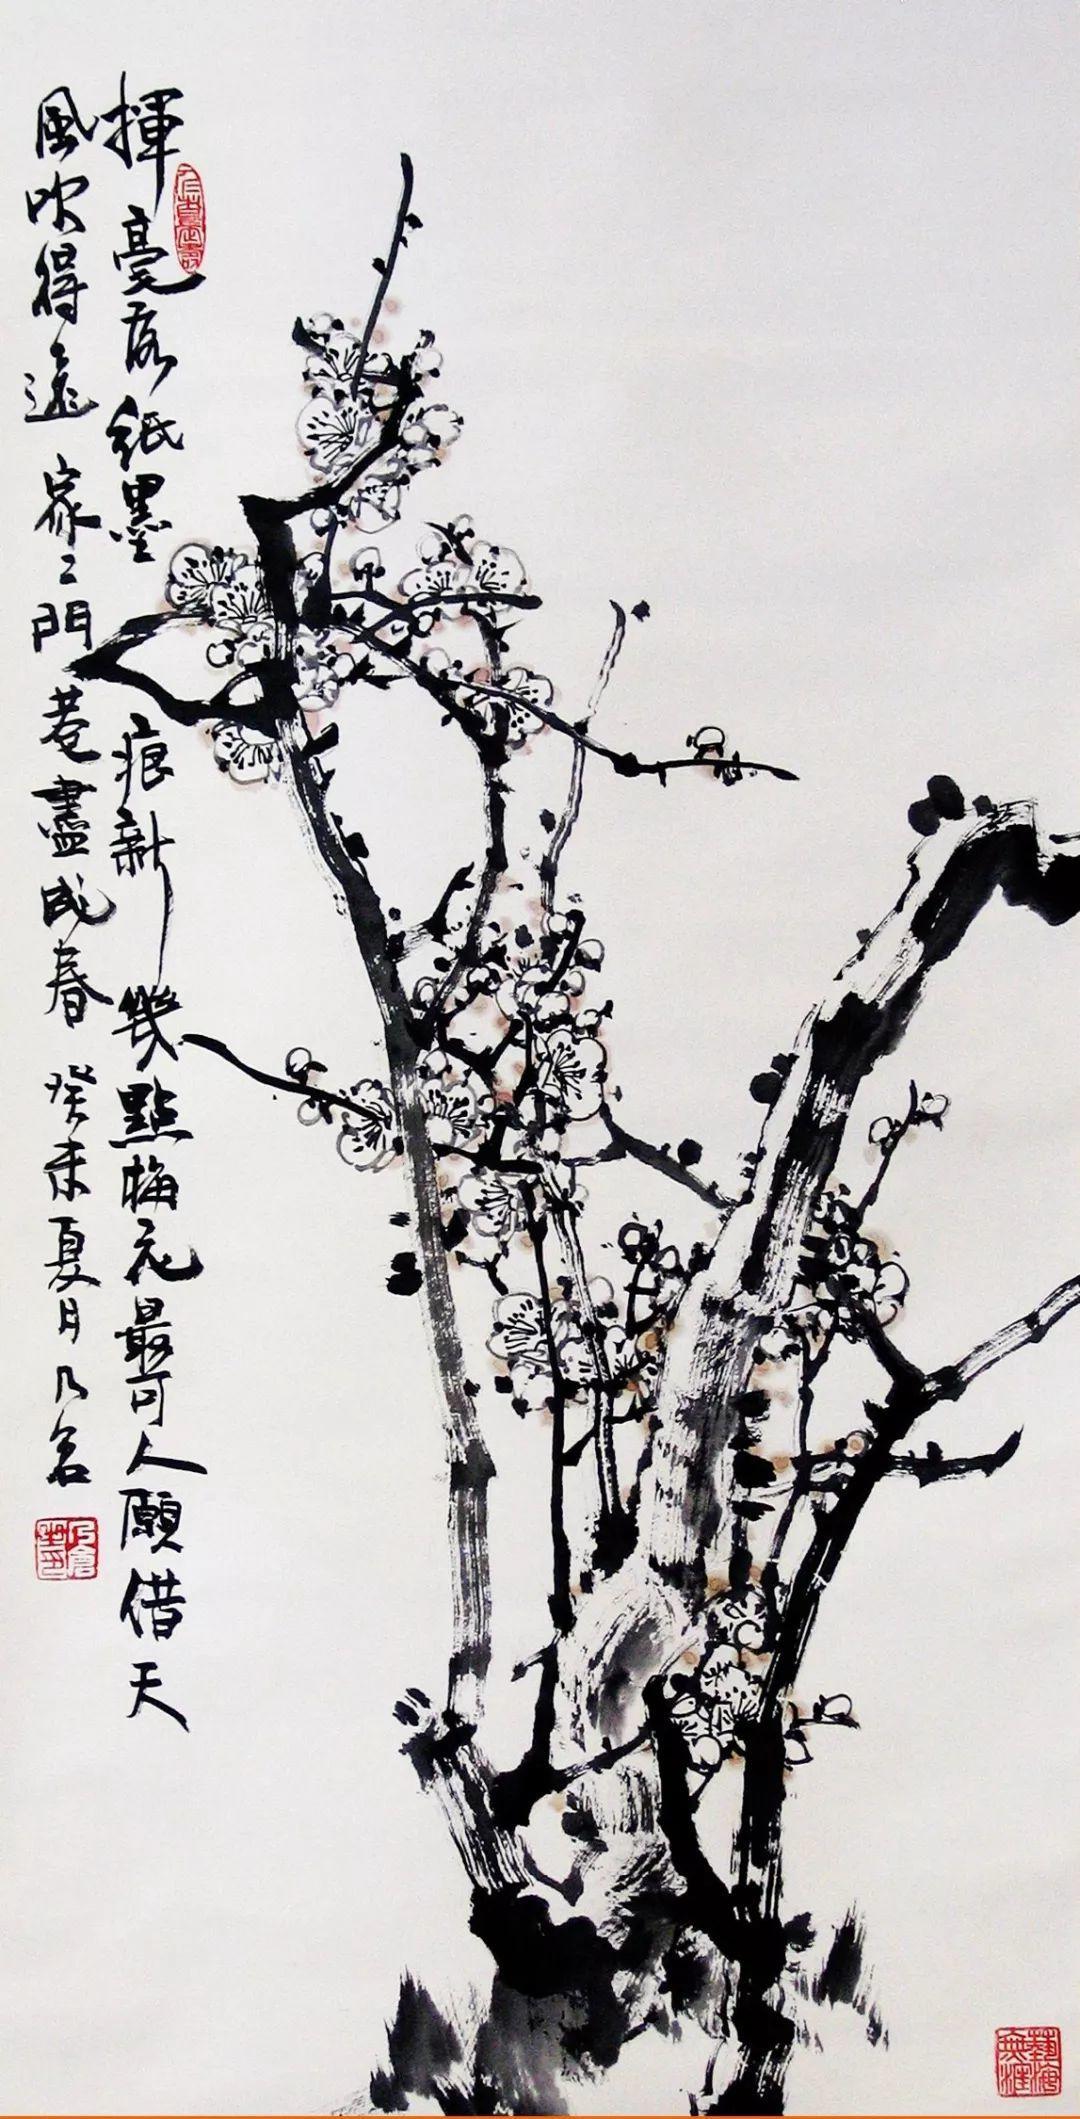 揮毫落紙墨痕新幾點梅花最可人願借天
風吹得遠家〻門巷盡成春 癸未夏月乃
藝海無涯